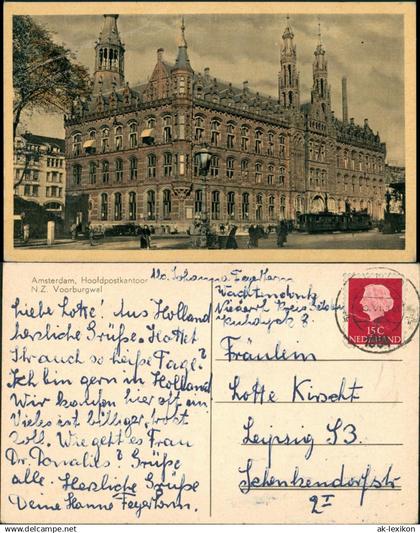 Amsterdam, Hoofdpostkantoor
N.Z. Voorburgwal
Liebe Lotte! Aus Holland
herzliche Grüße. Hattet
Ihr auch so heiße Tage?
Ich bin gern in Holland
Wir kaufen hier oft ein
Vieles ist billiger, trotz
Zoll. Wie geht es Frau
Dr. Donalies? Grüße
alle. Herzliche Grüße
Deine Hanne Feyerherm.
Abs. Johanna Feyerherm
Wachtendonk
Niederrh. Kreis Geldern
15C
NEDERLAND
Fräulein
Lotte Kirscht
Leipzig S3.
Schenkendorfstr
2I
www.ansichtskarten-lexikon.de
ak-lexikon